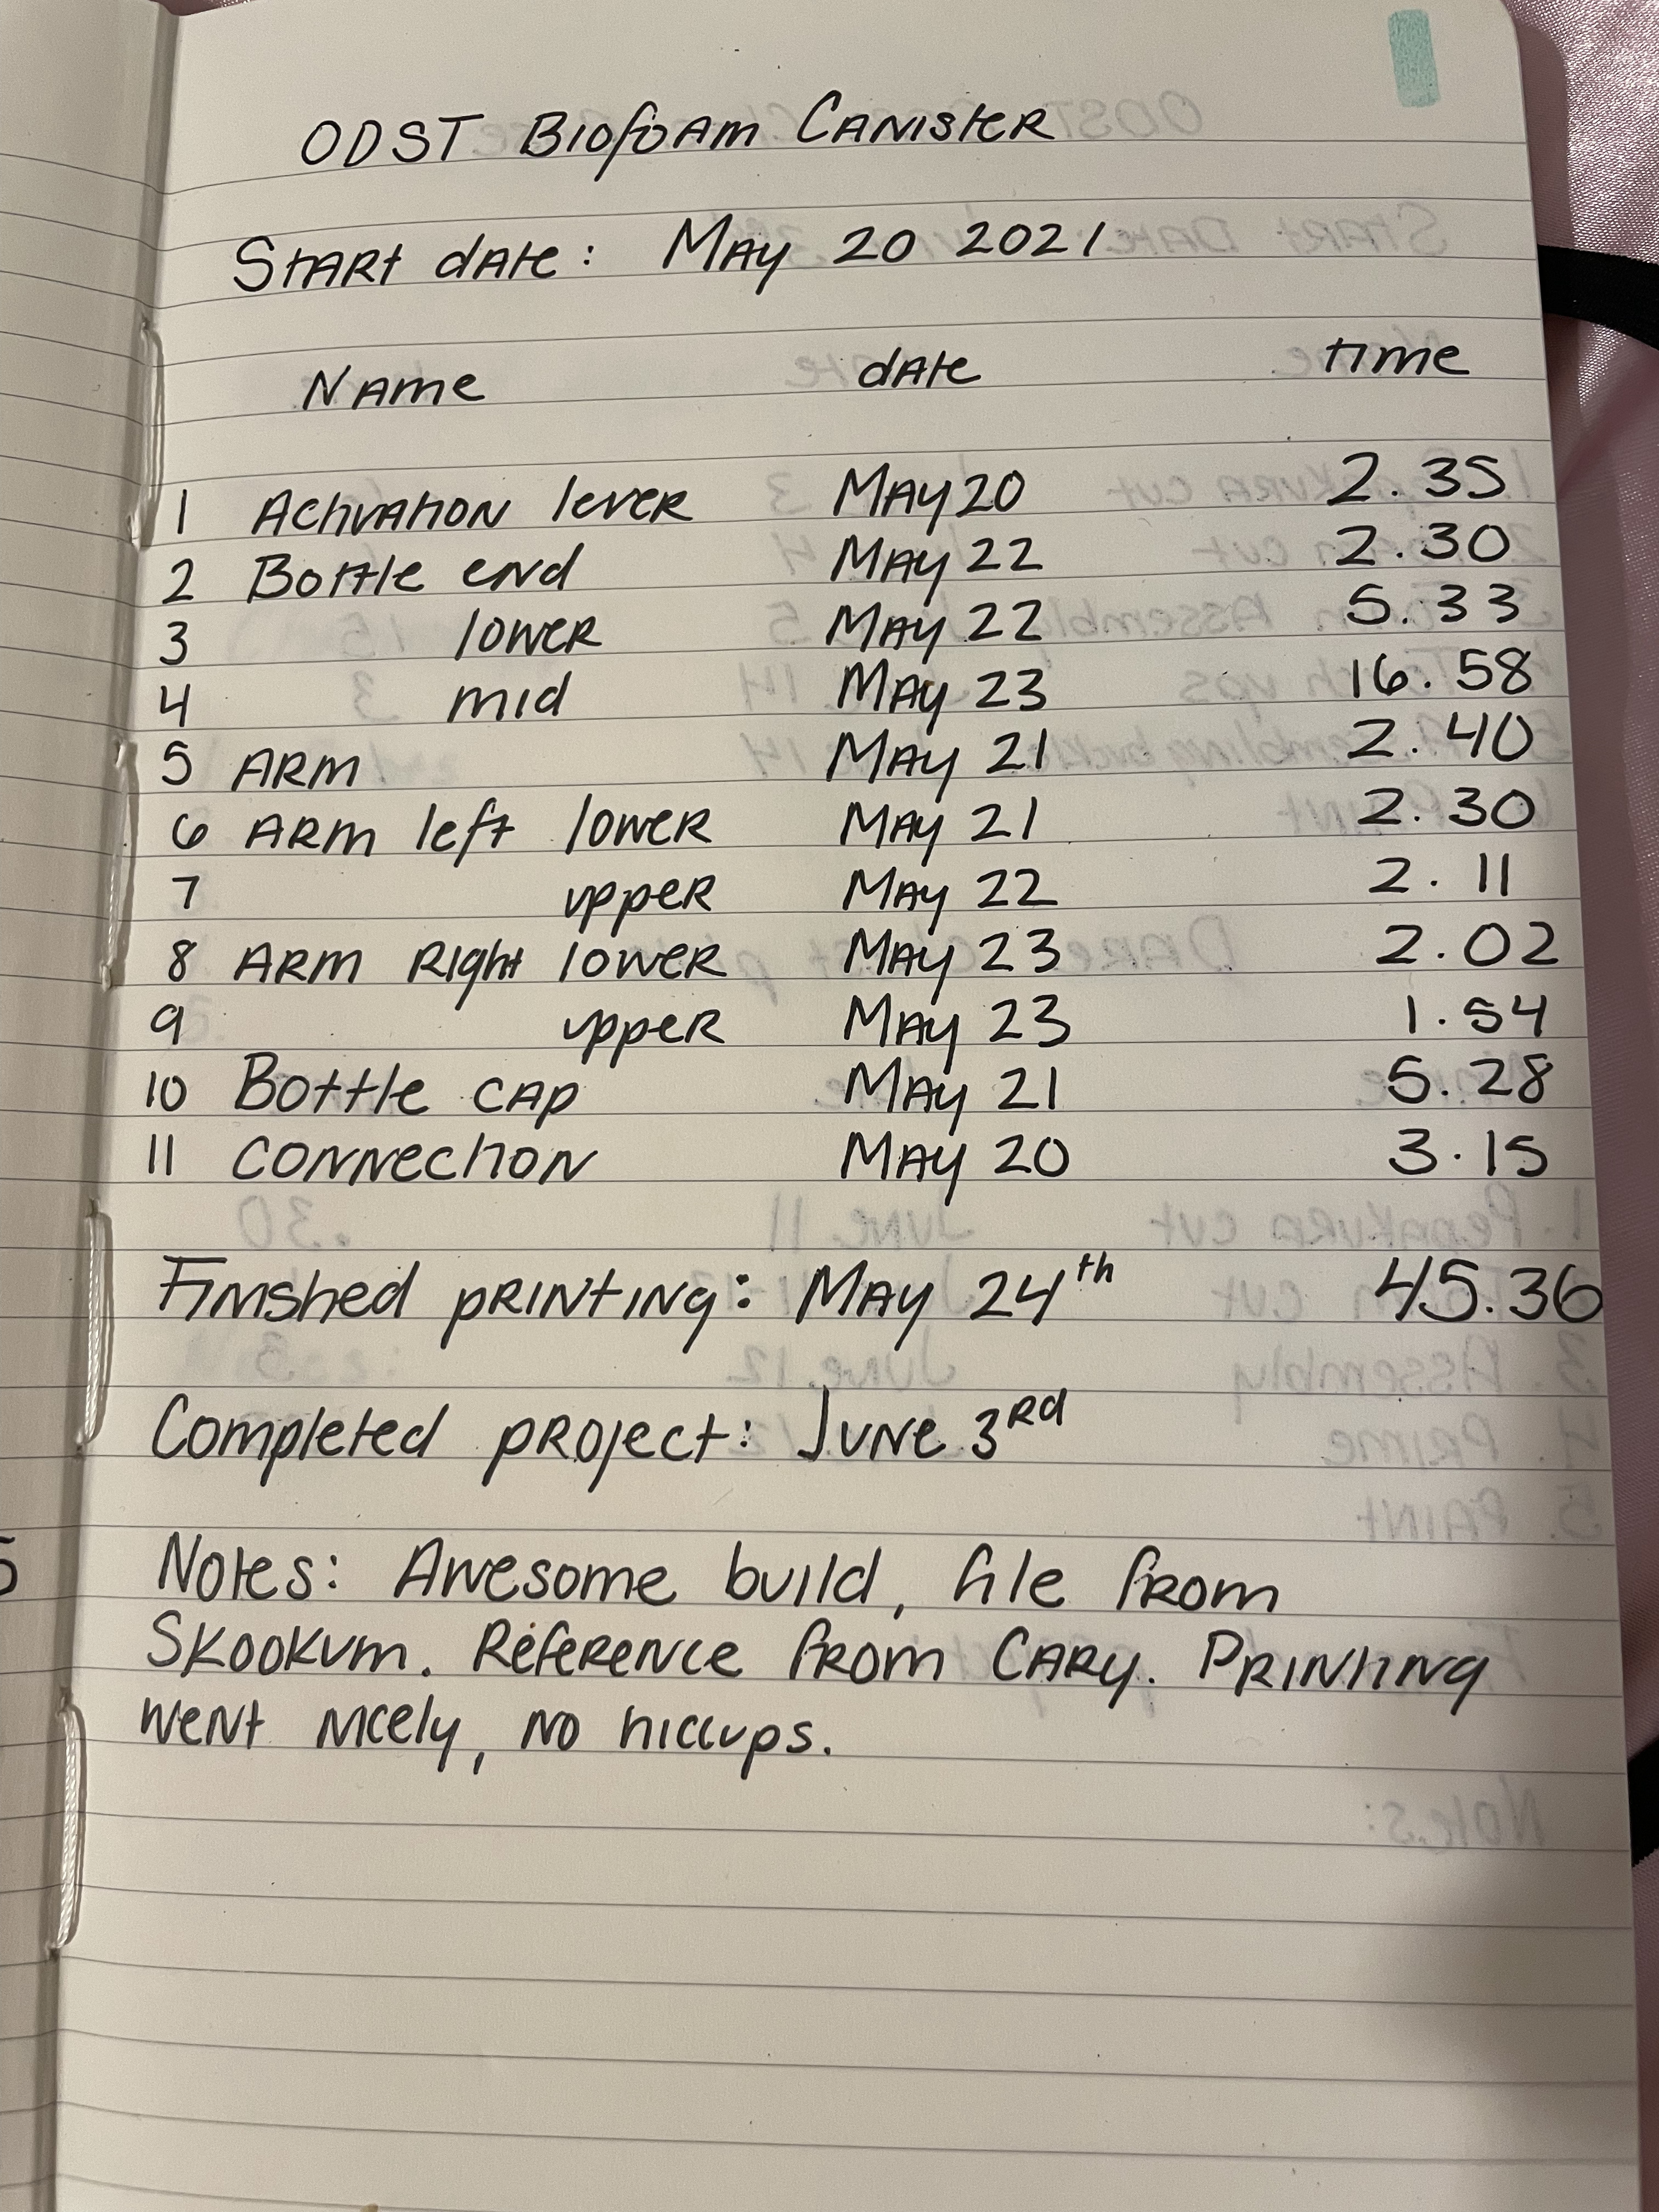 ODST Biofoam Canister
Start date: May 20 2021
Name date time
1 Activation lever May 20 2.35
2 Bottle end May 22 2.30
3 lower May 22 5.33
4 mid May 23 16.58
5 Arm May 21 2.40
6 Arm left lower May 21 2.30
7 upper May 22 2.11
8 Arm Right lower May 23 2.02
9 upper May 23 1.54
10 Bottle cap May 21 5.28
11 Connection May 20 3.15
Finished printing: May 24th 45.36
Completed project: June 3rd
Notes: Awesome build, file from
Skookum. Reference from Cary. Printing
went nicely, no hiccups.